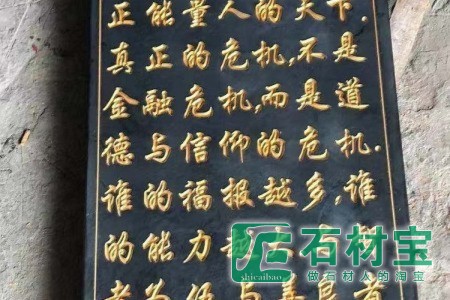 正能量人的天下,
真正的危机,不是
金融危机,而是道
德与信仰的危机.
谁的福报越多,谁
的能力越大
与善良
石材宝
shicaibao
做石材人的淘宝